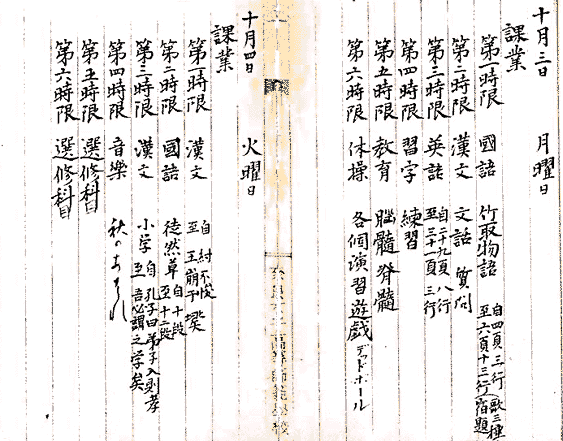 十月三日　月曜日
課業
第一時限　國語　竹取物語　自四頁三行　至六頁十三行　歌三種（宿題
第二時限　漢文　文話　質問
第三時限　英語　自二十九頁八行　至三十一頁三行
第四時限　習字　練習
第五時限　教育　脳髓脊髓
第六時限　体操　各個演習遊戯　デッドボール
高等師範學校
十月四日　火曜日
課業
第一時限　漢文　自　紂不　至　王崩子
第二時限　國語　徒然草　自十段　至十二段
第三時限　漢文　小学　自　孔子曰弟子入則孝　至　吾必謂之学矣
第四時限　音樂　秋のあはれ
第五時限　選修科目
第六時限　選修科目